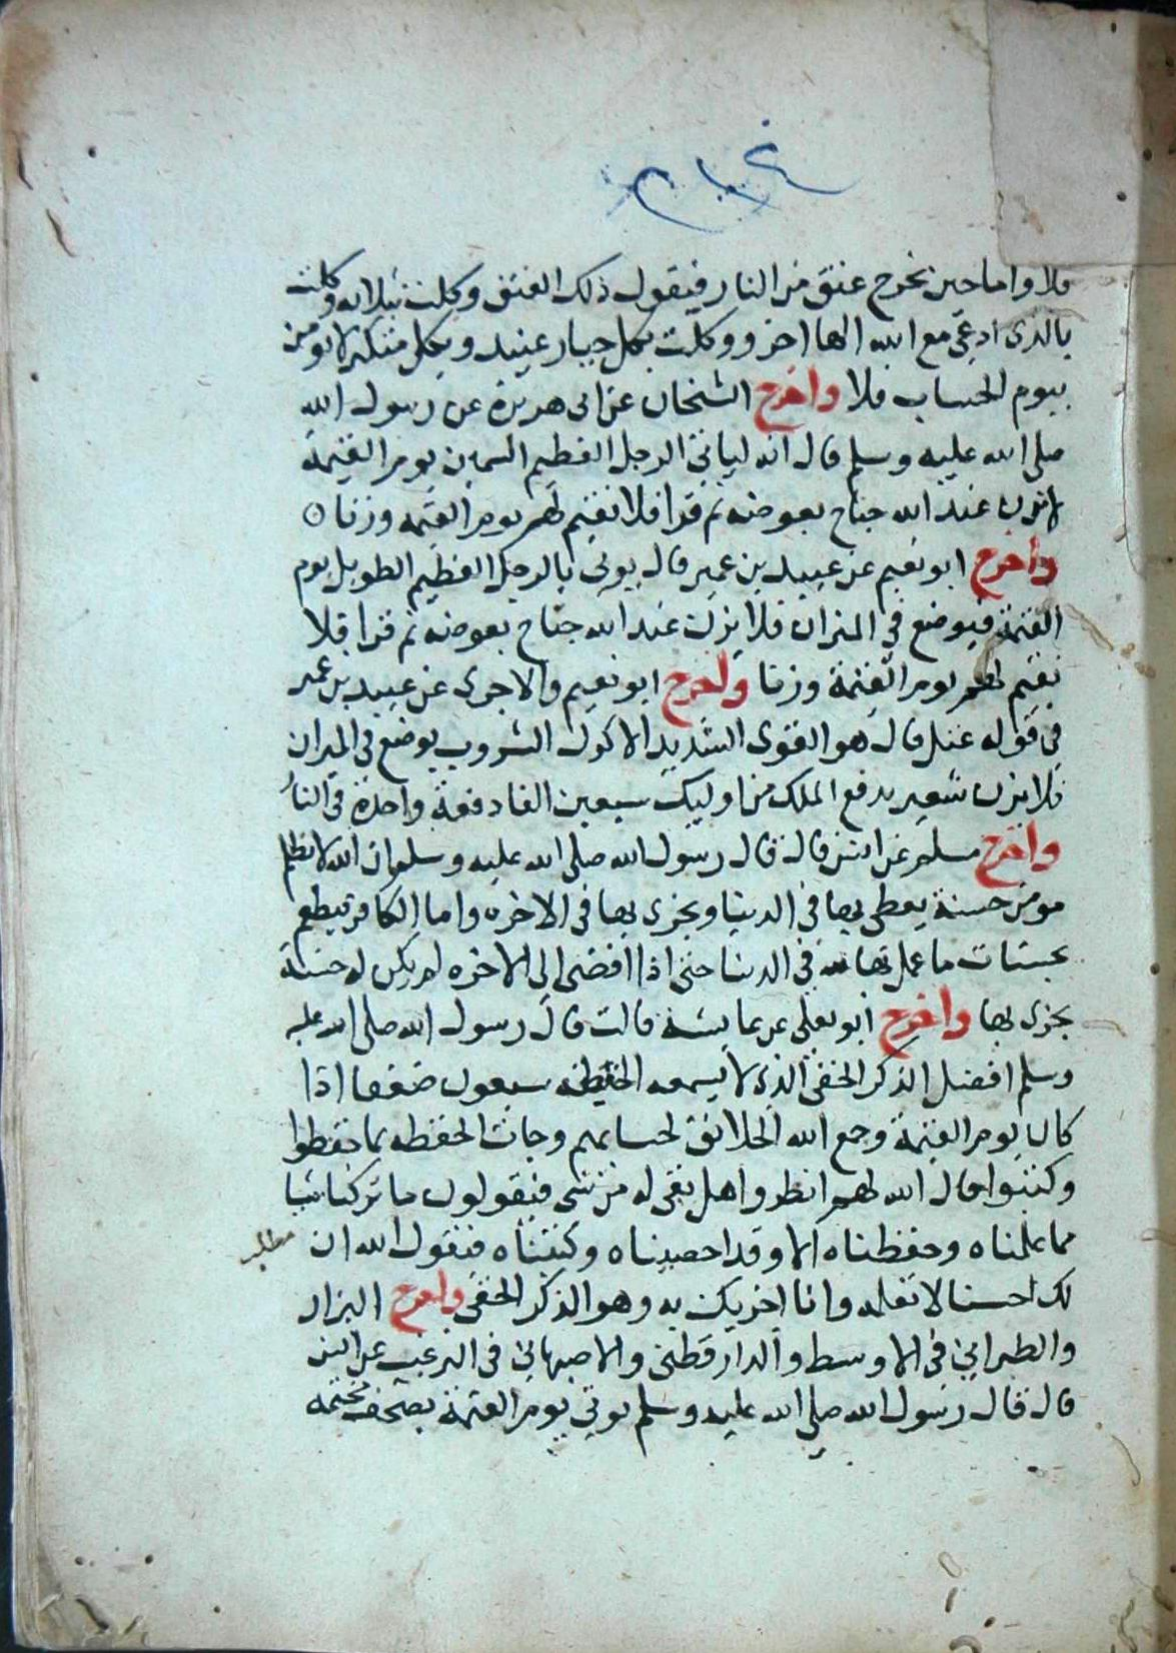 فلا واما حين تخرج عنق من النار فيقول ذلك العنق وكلت بثلاثة وكلت
بالذى ادعى مع الله الها اخر ووكلت بكل جبار عنيد وبكل متكبر لا يومن
بيوم الحساب فلا واخرج الشيخان عن ابى هريرة عن رسول الله
صلى الله عليه وسلم قال انه لياتى الرجل العظيم السمين يوم القيمة
لا يزن عند الله جناح بعوضه ثم قرا فلا نقيم لهم يوم القيمه وزنا
واخرج ابو نعيم عن عبيد بن عمير قال يوتى بالرجل العظيم الطويل يوم
القيمة فيوضع في الميزان فلا يزن عند الله جناح بعوضه ثم قرا فلا
نقيم لهم يوم القيمة وزنا واخرج ابو نعيم والاجرى عن عبيد بن عمير
في قوله عتل قال هو القوى الشديد الاكول الشروب يوضع في الميزان
فلا يزن شعير يدفع الملك من اوليك سبعين الفا دفعة واحدة في النار
واخرج مسلم عن انس قال قال رسول الله صلى الله عليه وسلم ان الله لا يظلم
مومن حسنة يعطى بها في الدينا ويجزى بها في الاخره واما الكافر فيطعم
بحسنات ما عمل بها لله في الدنيا حتى اذا افضى الى الاخره لم يكن له حسنة
يجزى بها واخرج ابو يعلى عن عايشة قالت قال رسول الله صلى الله عليه
وسلم افضل الذكر الخفى الذى لا يسمعه الحفظه سبعون ضعفا اذا
كان يوم القيمة وجمع الله الخلائق لحسابهم وجات الحفظه بما حفظوا
وكتبوا قال الله لهم انظروا هل بقى له من شى فيقولون ما تركنا شيا
مما علمناه وحفظناه الا وقد احصيناه وكتبناه فيقول الله ان
مطلب
لك احسنا لا تعلمه وانا اجزيك به وهو الذكر الخفى واخرج البزار
والطبرانى فى الاوسط والدارقطنى والاصبهانى فى الترغيب عن انس
قال قال رسول الله صلى الله عليه وسلم يوتى يوم القيمة بصحف مختمه